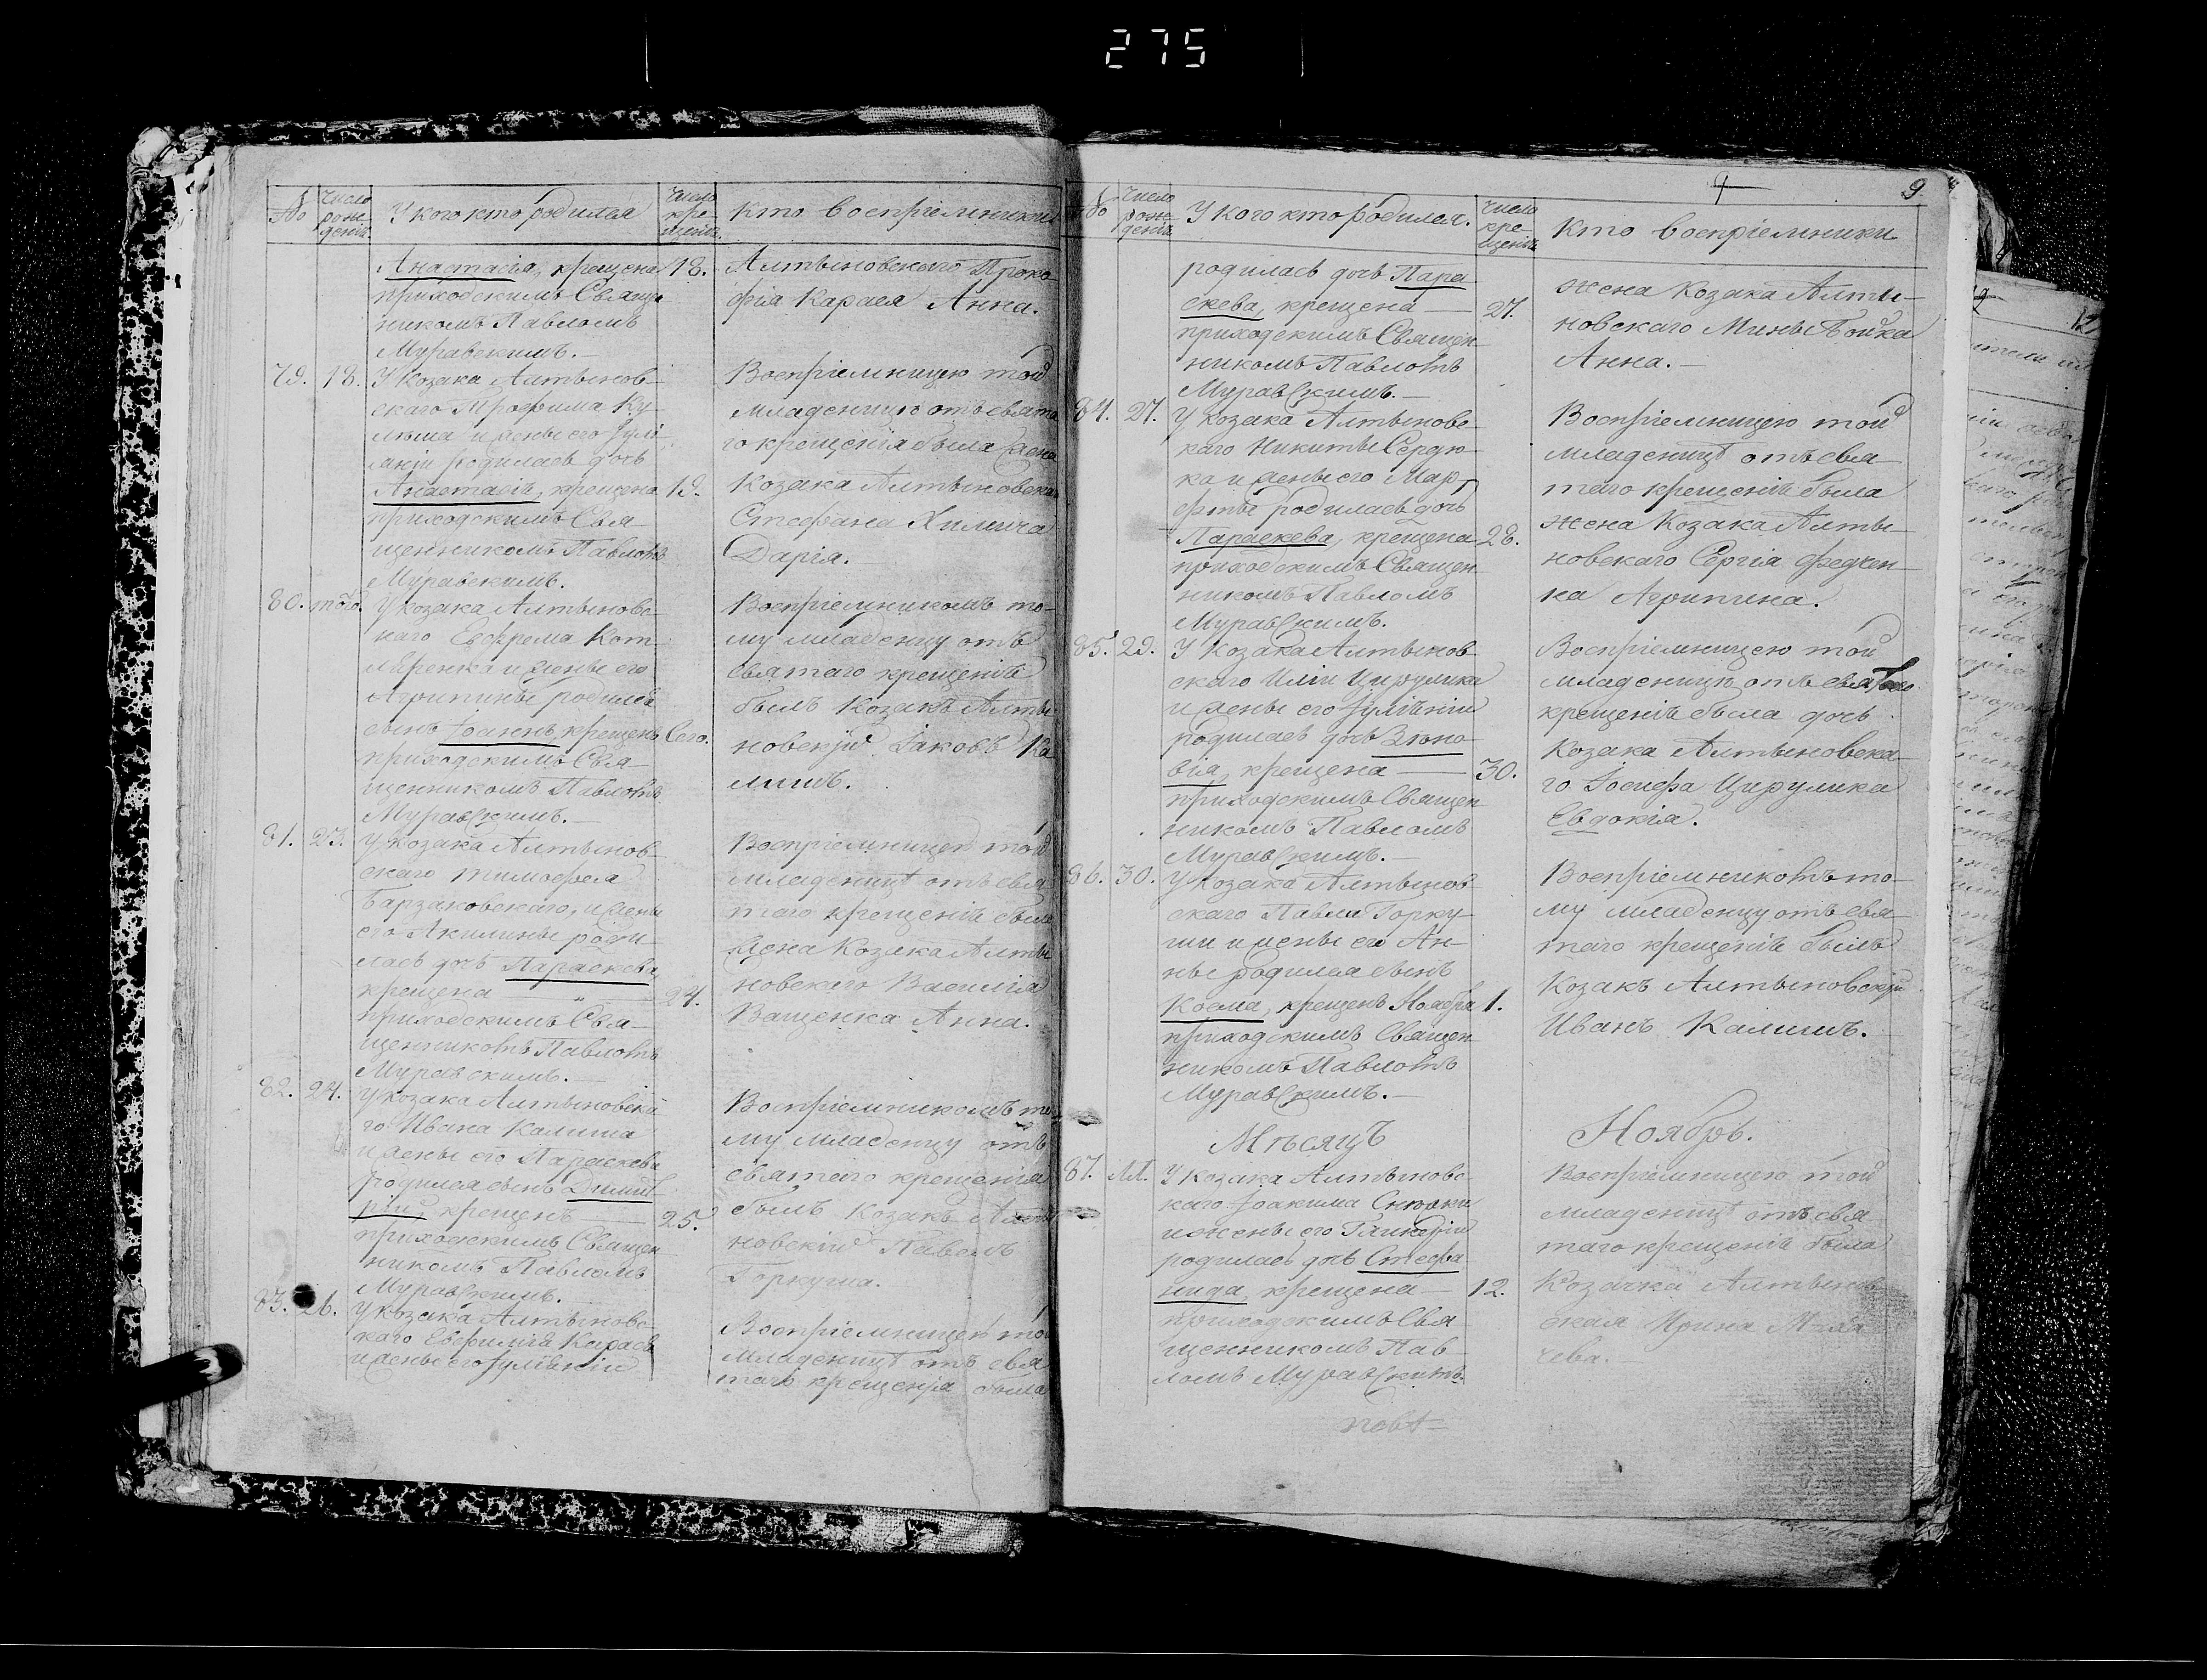 275
№
Число рожденія.
У кого кто родился
Число крещенія.
Кто воспріемники
Анастасія, крещена 18.
приходскимъ Священ
никомъ Павломъ
Муравскимъ.—
Алтыновскаго Проко
фія Карася Анна.
79. 18. У Козака Алтынов-
скаго Трофима Ку-
лиша и жены его Іулі-
яніи родилась дочь
Анастасія, крещена 19.
приходскимъ Свя-
щенникомъ Павломъ
Муравскимъ.
Воспріемницею той
младеницѣ отъ свята
го крещенія была жена
Козака Алтыновска
Стефана Химича
Дарія.
80. того У козака Алтыновс-
каго Ефрема Кот-
ляренка и жены его
Агрипины родился
сынъ Іоаннъ, крещенъ Сего.
приходскимъ Свя-
щенникомъ Павломъ
Муравскимъ.—
Воспріемникомъ то-
му младенцу отъ
святаго крещенія
былъ Козакъ Алты
новскій Іаковъ Ка
лишъ.
81. 23. У Козака Алтынов-
скаго Тимофея
Барзаковскаго, и жены
его Акилины роди-
лась дочь Параскева
крещена — 24.
приходскимъ Свя-
щенникомъ Павломъ
Муравскимъ.—
Воспріемницею той
младеницѣ отъ свя
таго крещенія была
жена Козака Алты
новскаго Василія
Ващенка Анна.
82. 24. У козака Алтыновска
го Ивана Калиша
и жены его Параскевы
родился сынъ Димит-
рій, крещенъ — 25.
приходскимъ Священ
никомъ Павломъ
Муравскимъ.
Воспріемникомъ то
му младенцу отъ
святаго крещенія
былъ Козакъ Алты
новскій Павелъ
Горкуша.
83. 26. У козака Алтыновс-
каго Евфимія Карася
и жены его Іуліяніи
Воспріемницею той
младеницѣ отъ свя
таго крещенія была
9
№
Число рожденія
У кого кто родился.
Число крещенія
Кто воспріемники
9.
родилась дочь Пара
скева, крещена — 27.
приходскимъ Священ-
никомъ Павломъ
Муравскимъ.—
жена Козака Алты-
новскаго Мины Бойка
Анна.—
84. 27. У Козака Алтыновс-
каго Никиты Сердю-
ка и жены его Мар-
фты родилась дочь
Параскева, крещена 28.
приходскимъ Священ-
никомъ Павломъ
Муравскимъ.
Воспріемницею той
младеницѣ отъ свя-
таго крещенія была
жена Козака Алты-
новскаго Сергія Федчен-
ка Агрипина.
85. 29. У Козака Алтынов-
скаго Иліи Цирулика
и жены его Іуліяніи
родилась дочь Зѣно-
вія, крещена — 30.
приходскимъ Священ-
никомъ Павломъ
Муравскимъ.—
Воспріемницею той
младеницѣ отъ святаго
крещенія была дочь
Козака Алтыновска-
го Іосифа Цирулика
Евдокія.
86. 30. У Козака Алтынов-
скаго Павла Горку-
ши и жены его Ан-
ны родился сынъ
Косма, крещенъ Ноября 1.
приходскимъ Священ-
никомъ Павломъ
Муравскимъ.—
Воспріемникомъ то-
му младенцу отъ свя-
таго крещенія былъ
Козакъ Алтыновскій
Иванъ Калишъ.
Мѣсяцъ Ноябрь.
87. 11. У Козака Алтыновс-
каго Іоакима
и жены его Гликеріи
родилась дочь Стефа-
нида, крещена — 12.
приходскимъ Свя-
щенникомъ Пав-
ломъ Муравскимъ.
Воспріемницею той
младеницѣ отъ свя-
таго крещенія была
Козачка Алтынов-
ская Ирина
чева.